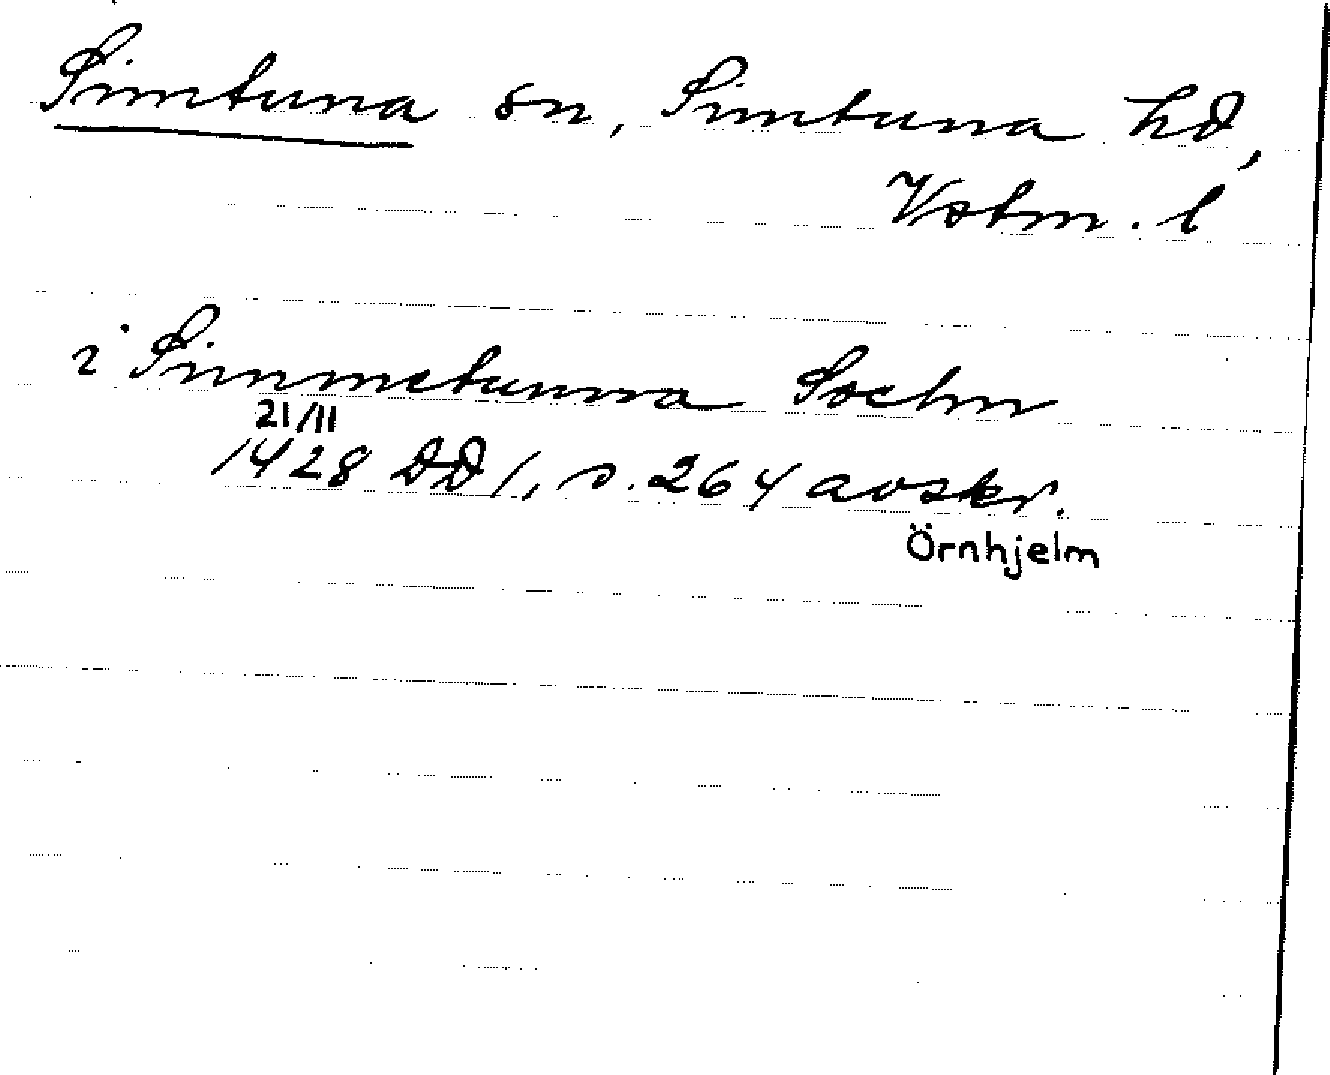 Simtuna sn, Simtuna hd,
Vstm. l
i Sinnmetunna Sochn
21/11
1428 DD 1, s. 264 avskr.
Örnhjelm